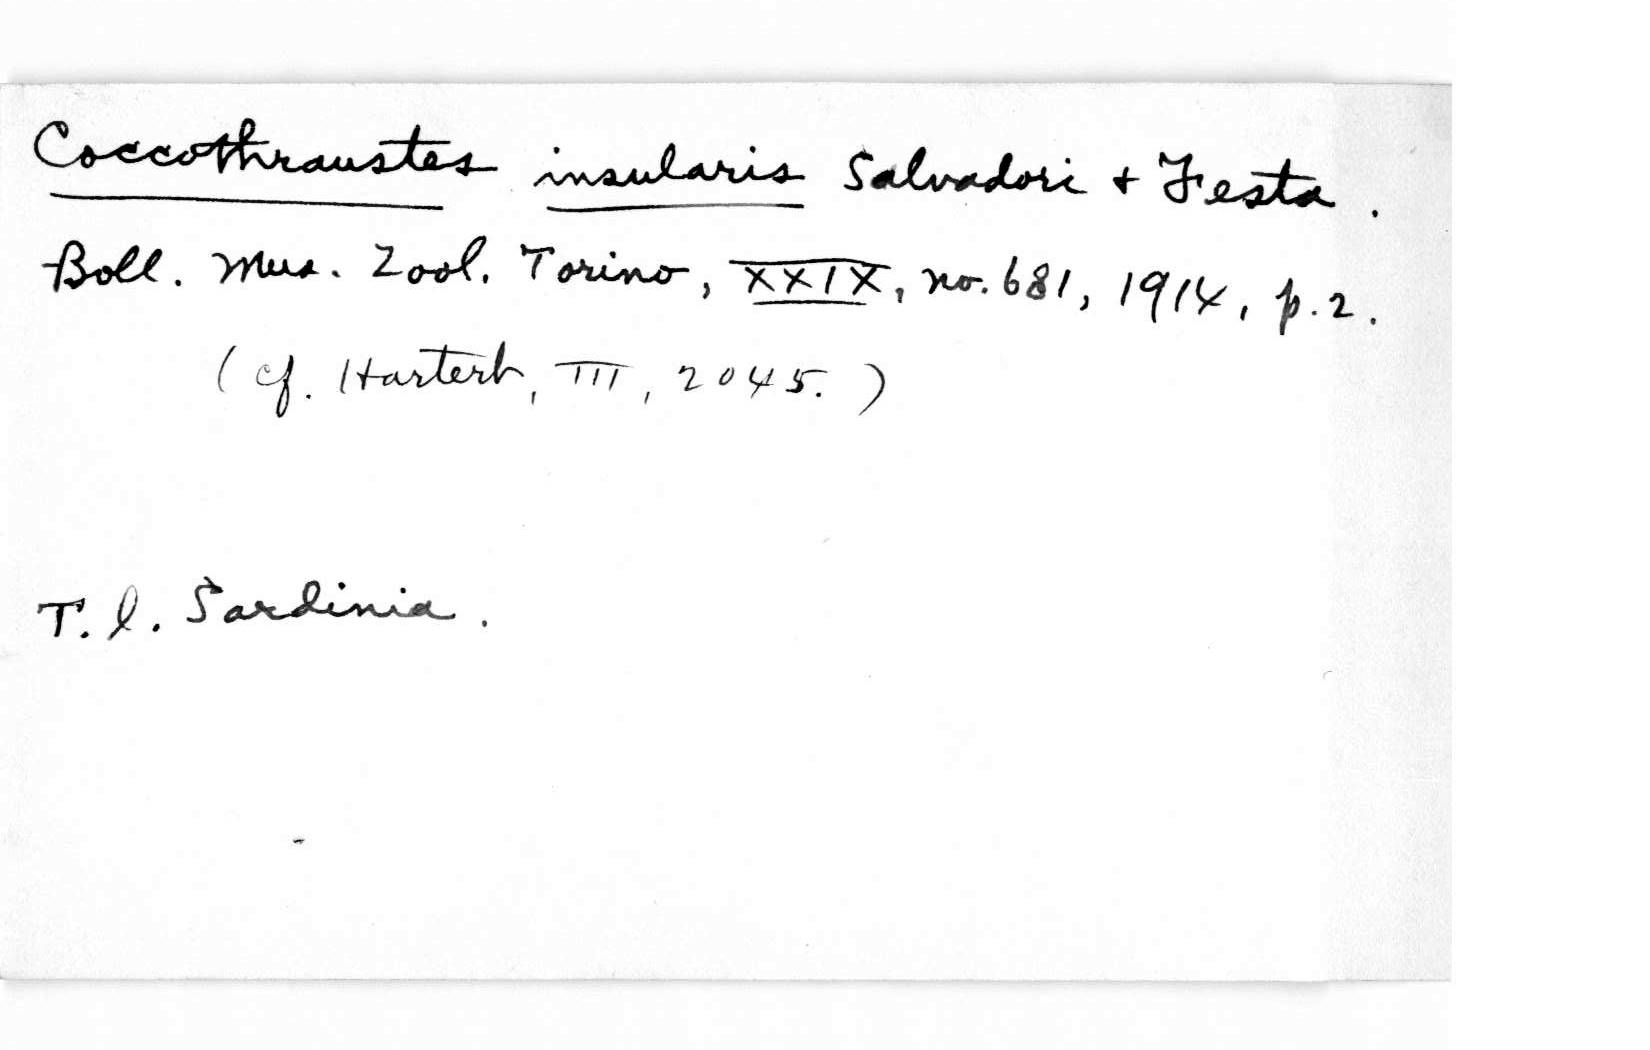 Coccothraustes insularis Salvadori + Festa.
Boll. Mus. Zool. Torino, XXIX, no. 681, 1914, p. 2.
(cf. Hartert, III, 2045.)
T. l. Sardinia.